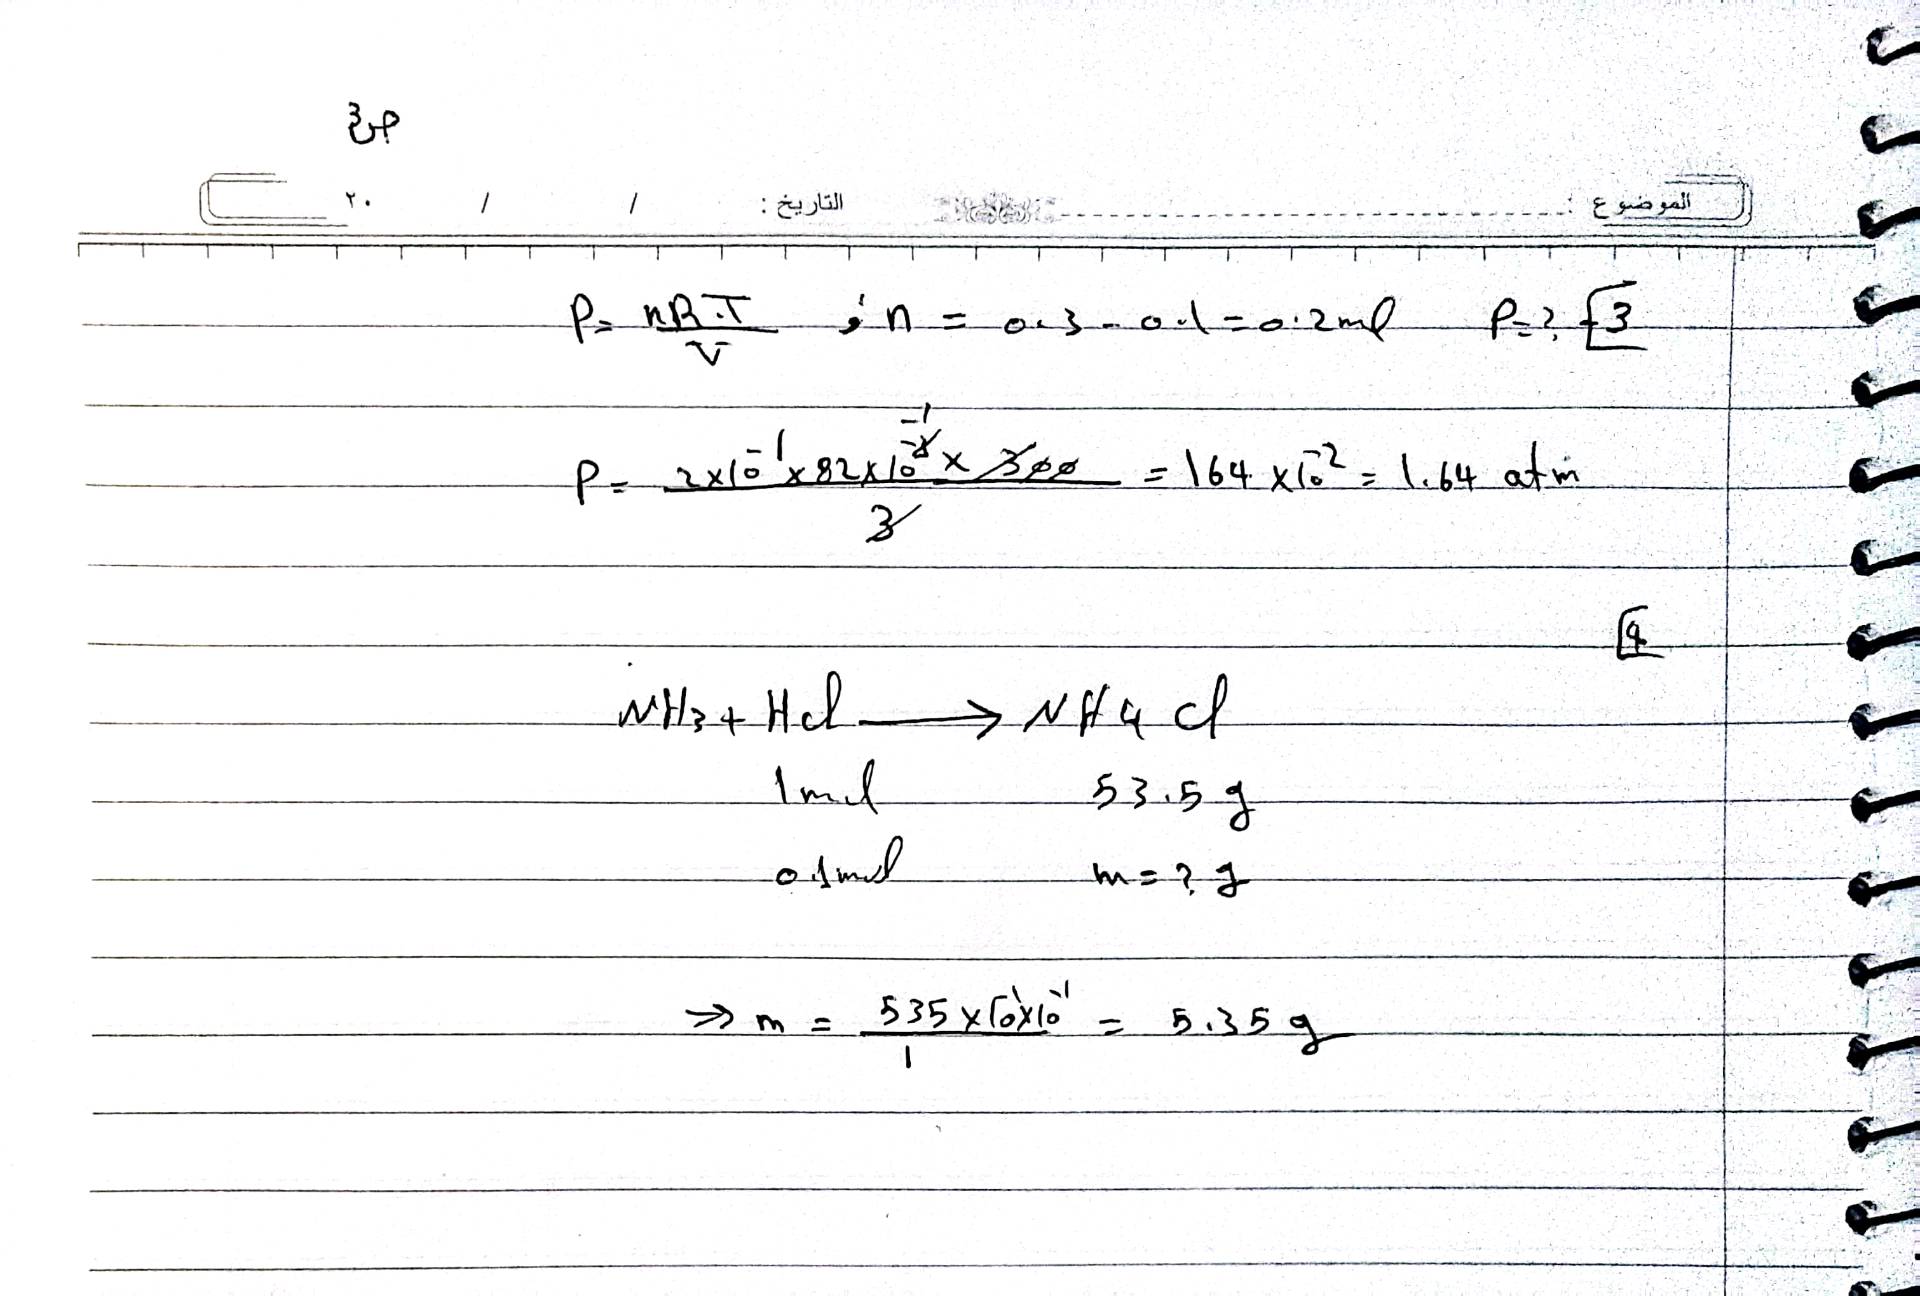 ص3
الموضوع : التاريخ : / / ٢٠
3 P=? n = 0.3 - 0.1 = 0.2 mol ; P = nR.T / V
P = 2×10⁻¹ × 82×10⁻³ × 300 / 3 = 164 × 10⁻² = 1.64 atm
4
NH3 + HCl → NH4Cl
1mol 53.5 g
0.1mol m = ? g
⇒ m = 535 × 10⁻¹ × 10⁻¹ / 1 = 5.35 g